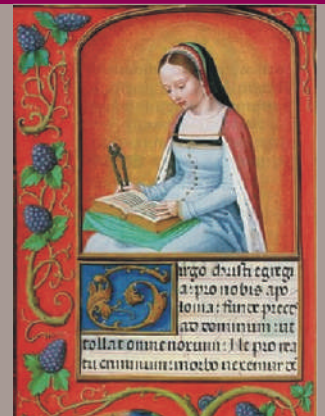 Virgo christi egregi
a: pro nobis apo
lonia: funde preces
ad dominum: ut
tollat omne noxium: Ne pro rea
tu criminum: morbo vexemur